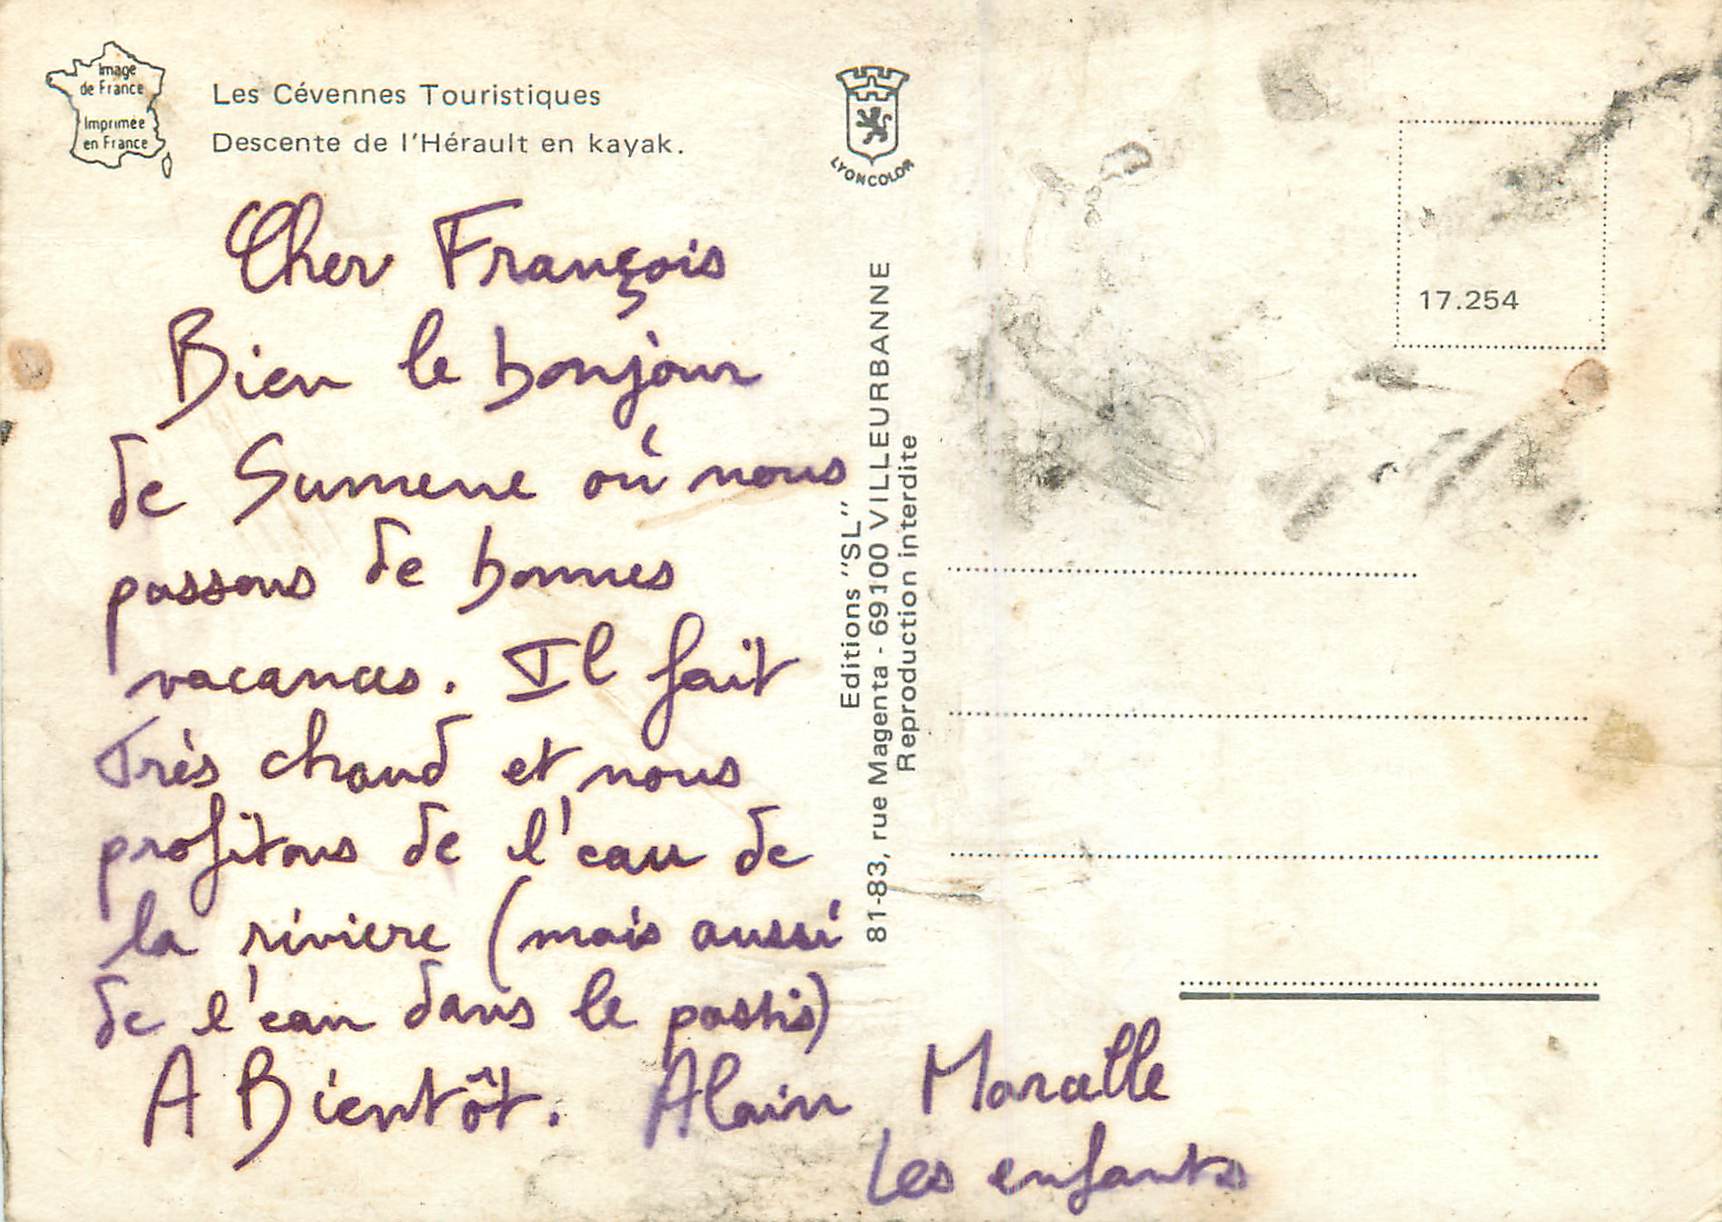 Image
de France
Imprimée
en France
Les Cévennes Touristiques
Descente de l'Hérault en kayak.
LYONCOLOR
17.254
Cher François
Bien le bonjour
de Sumene où nous
passons de bonnes
vacances. Il fait
très chaud et nous
profitons de l'eau de
la riviere (mais aussi
de l'eau dans le pastis)
A Bientôt. Alain Marcelle
Les enfants
Editions "SL"
81-83, rue Magenta - 69100 VILLEURBANNE
Reproduction interdite